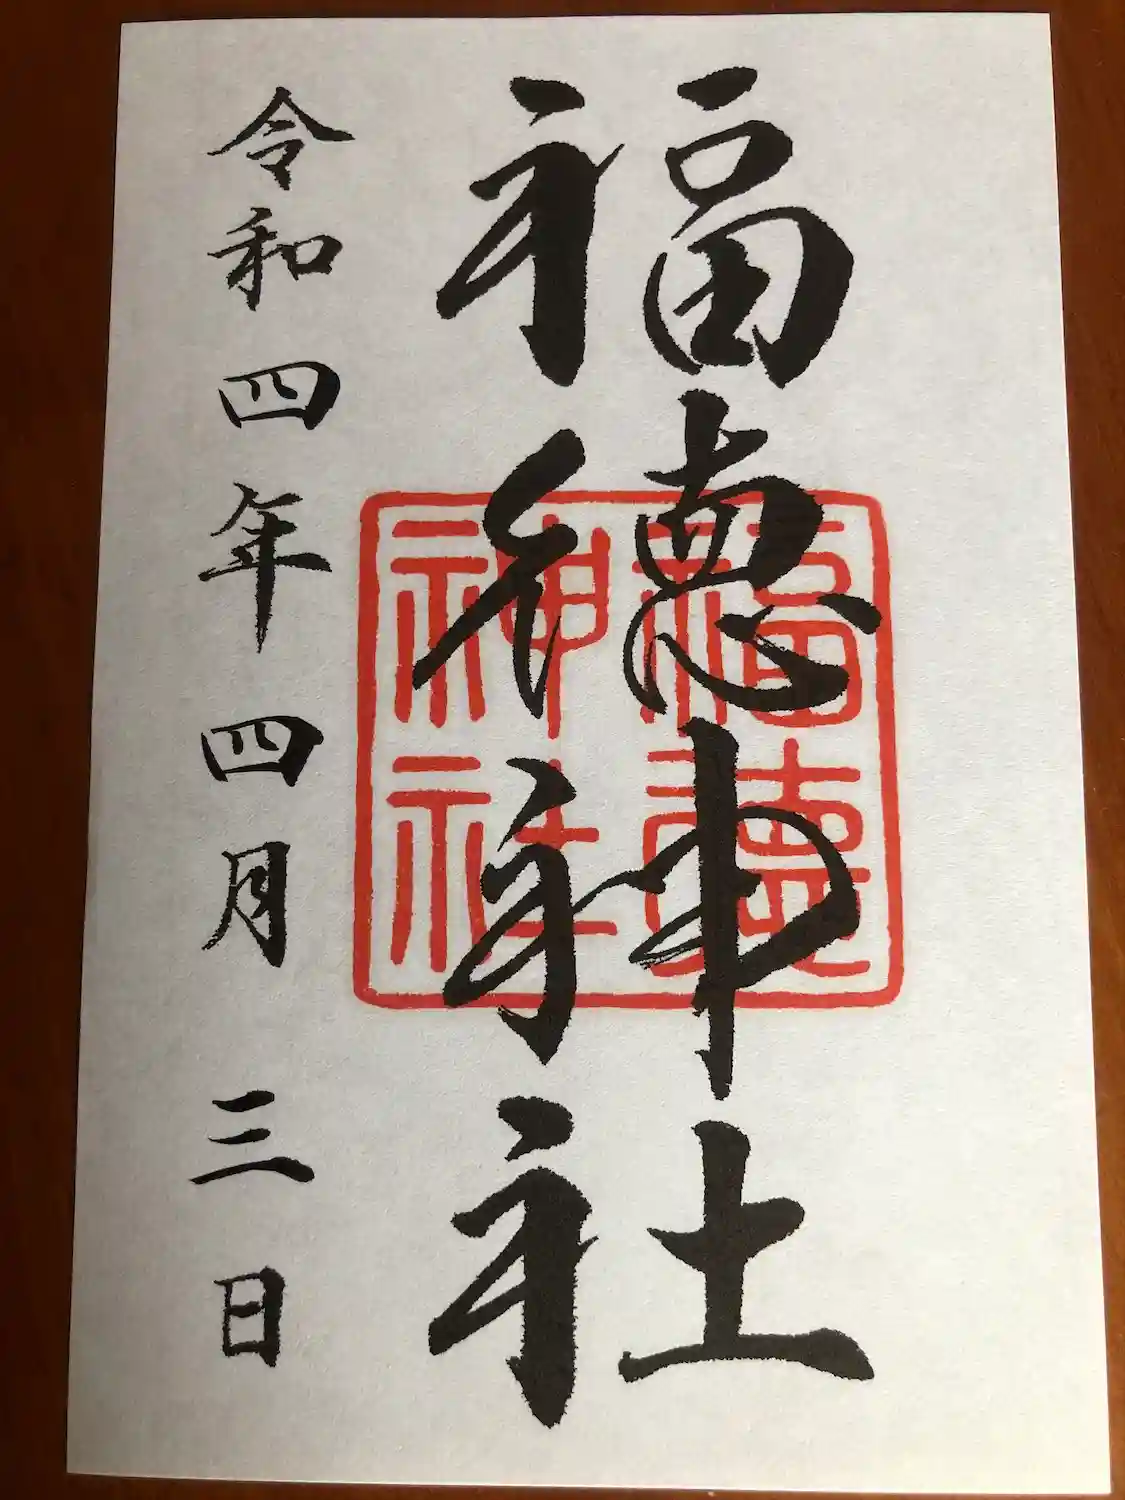 福徳神社
福徳
神社
令和四年四月三日